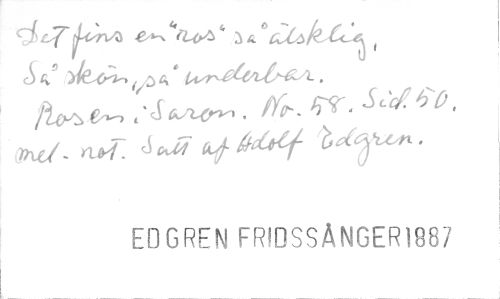 Det fins en "ros" så älsklig,
Så skön, så underbar.
Rosen i Saron. No. 58. Sid. 50.
mel. not. Satt af Adolf Edgren.
EDGREN FRIDSSÅNGER 1887